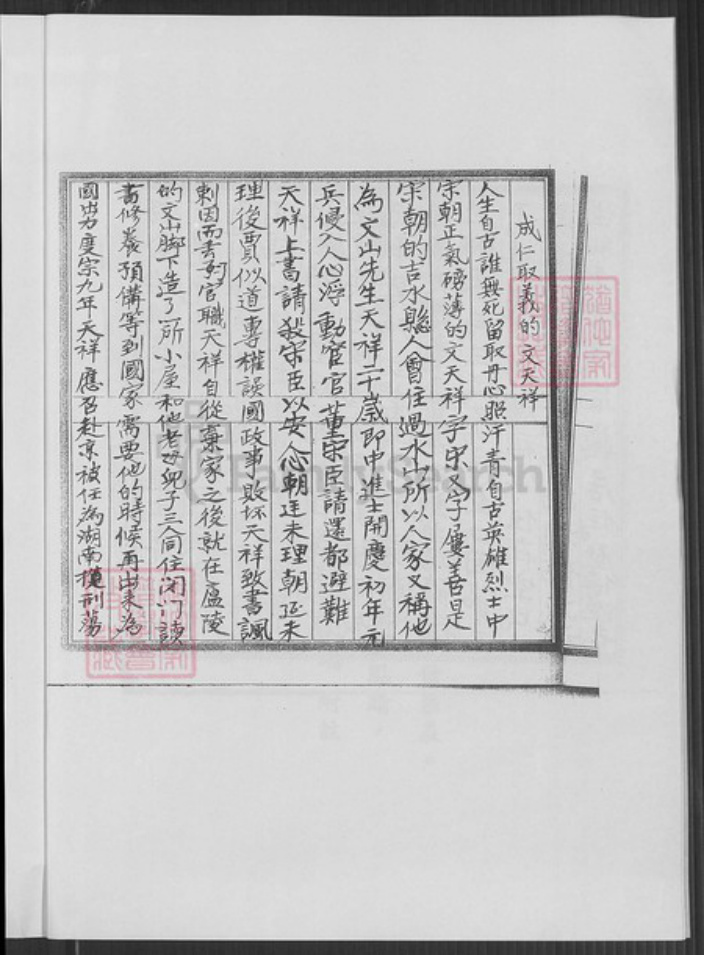 成仁取義的文天祥
人生自古誰無死留取丹心照汗青自古英雄烈士中
宋朝正氣磅薄的文天祥字宋又字屨善是
宋朝的吉水縣人曾住過水山所以人家又稱他
為文山先生天祥二十歲即中進士開慶初年元
兵侵入人心浮動宦官董宋臣請還都避難
天祥上書請殺宋臣以安人心朝廷未理朝廷未
理後賈似道專權誤國政事敗坏天祥致書諷
刺因而丟官職天祥自從棄家之後就在廬陵
的文山脚下造了一所小屋和他老母兒子三人同住閉門讀
書修養預備等到國家需要他的時候再出來為
國出力度宗九年天祥應召赴京被任為湖南提刑蕩
FamilySearch